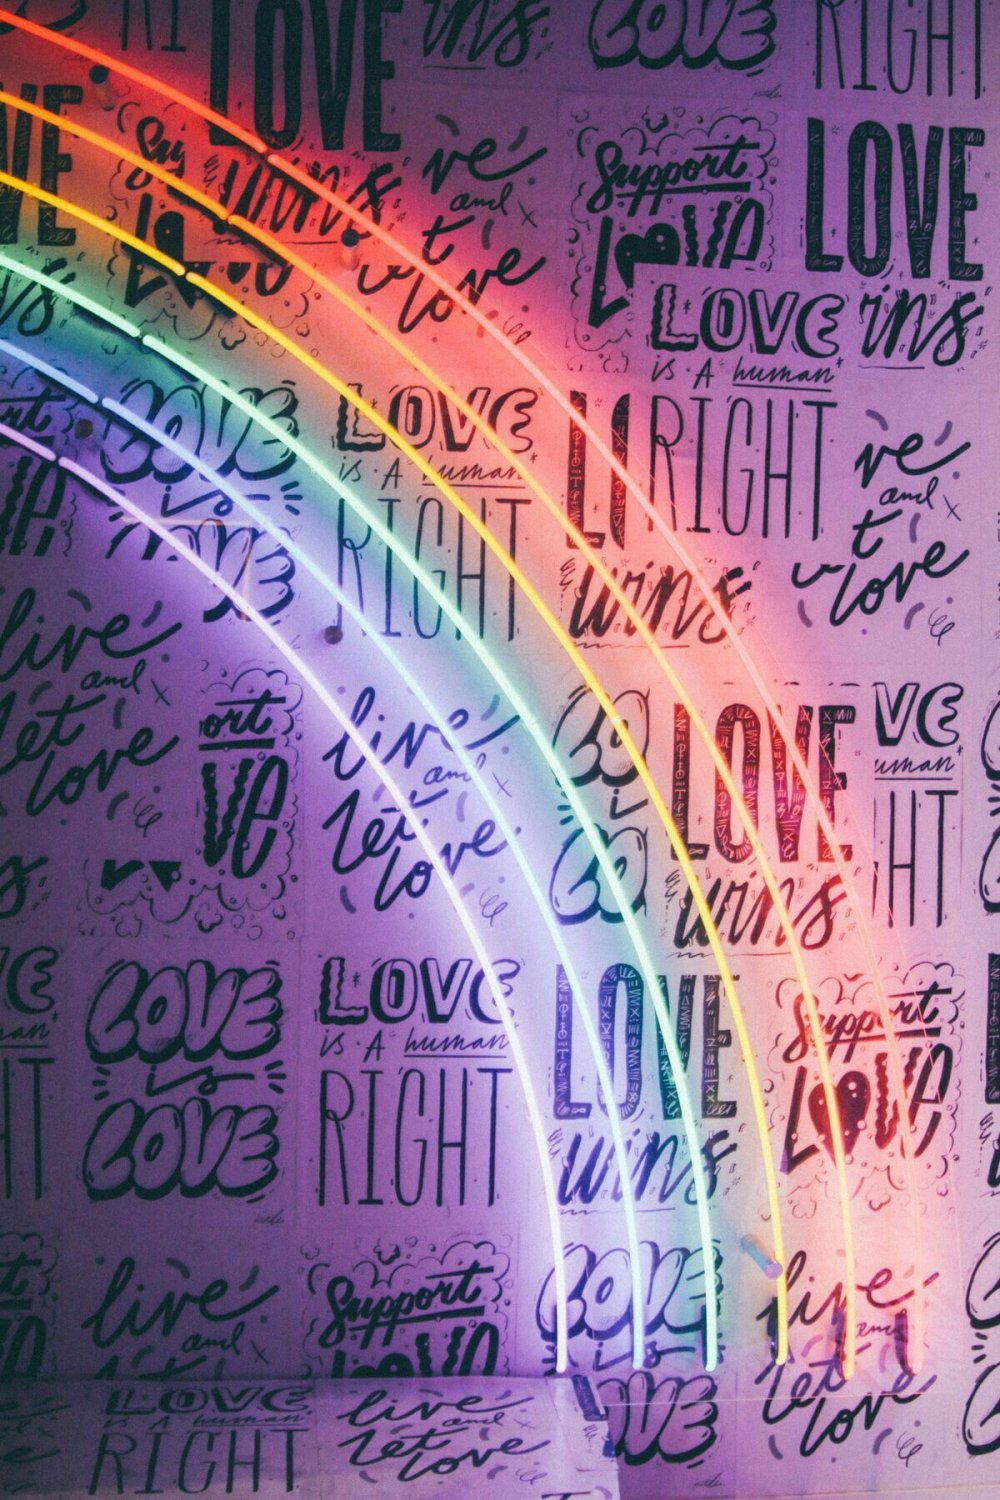 RI
LOVE
ins
LOVE
RIGHT
Support
LOVE
LOVE
wins
ve
and
t
love
Support
LOVE
LOVE
ins
LOVE
is A human
RIGHT
ve
and
t
love
LOVE
is
LOVE
is A human
RIGHT
wins
live
and
let
love
ort
VE
live
and
let
love
LOVE
wins
VE
uman
HT
LOVE
is
LOVE
LOVE
is A human
RIGHT
LOVE
wins
Support
LOVE
live
and
let
Support
LOVE
LOVE
is
OVE
live
and
let
love
LOVE
is A human
RIGHT
live
and
let
love